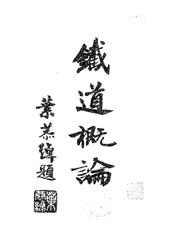 鐵道概論
葉恭綽題